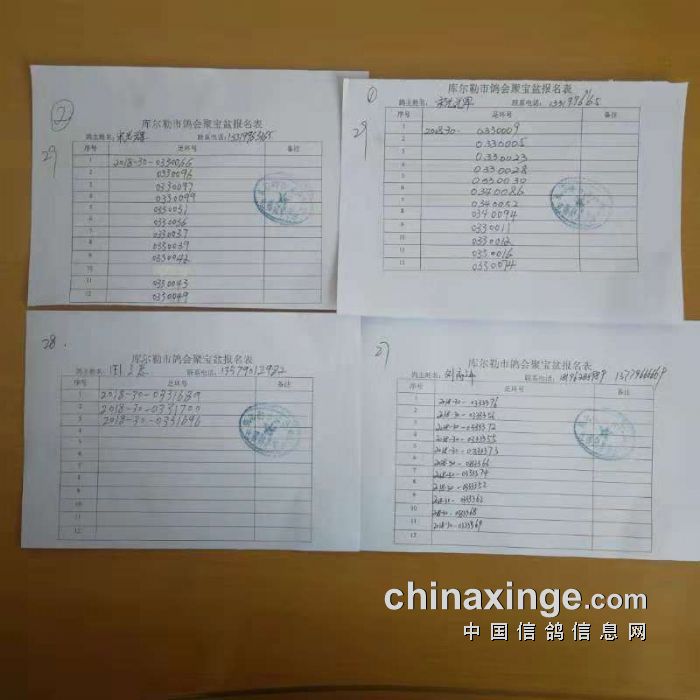 ②
29
库尔勒市鸽会聚宝盆报名表
鸽主姓名:
联系电话:
序号 足环号 备注
1 2018-30-0330066
2 0330096
3 0330097
4 0330099
5 0330051
6 0330056
7 0330037
8 0330039
9 0330042
10
11 0330043
12 0330049
①
29
库尔勒市鸽会聚宝盆报名表
鸽主姓名:
联系电话:
序号 足环号 备注
1 2018-30-0330009
2 0330005
3 0330023
4 0330028
5 0330030
6 0340086
7 0340052
8 0340094
9 0330011
10 0330012
11 0330016
12 0330074
28.
库尔勒市鸽会聚宝盆报名表
鸽主姓名:
联系电话: 13579012982
序号 足环号 备注
1 2018-30-0331689
2 2018-30-0331700
3 2018-30-0331696
4
5
6
7
8
9
10
11
12
27
库尔勒市鸽会聚宝盆报名表
鸽主姓名:
联系电话:
序号 足环号 备注
1 2018-30-0333376
2 2018-30-0333356
3 2018-30-0333372
4 2018-30-0333355
5 2018-30-0333373
6 2018-30-0333366
7 2018-30-0333374
8 2018-30-0333352
9 2018-30-0333363
10
11 2018-30-0333369
12
chinaxinge.com
中国信鸽信息网